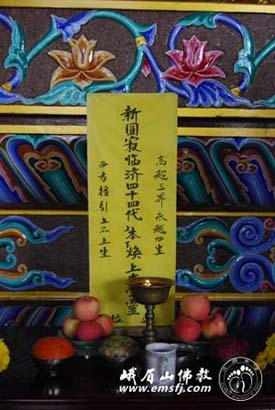 高超三界永越四生
新圓寂临济四十四代焕上靈位
西方接引上品上生
峨眉山佛教
www.emsfj.com